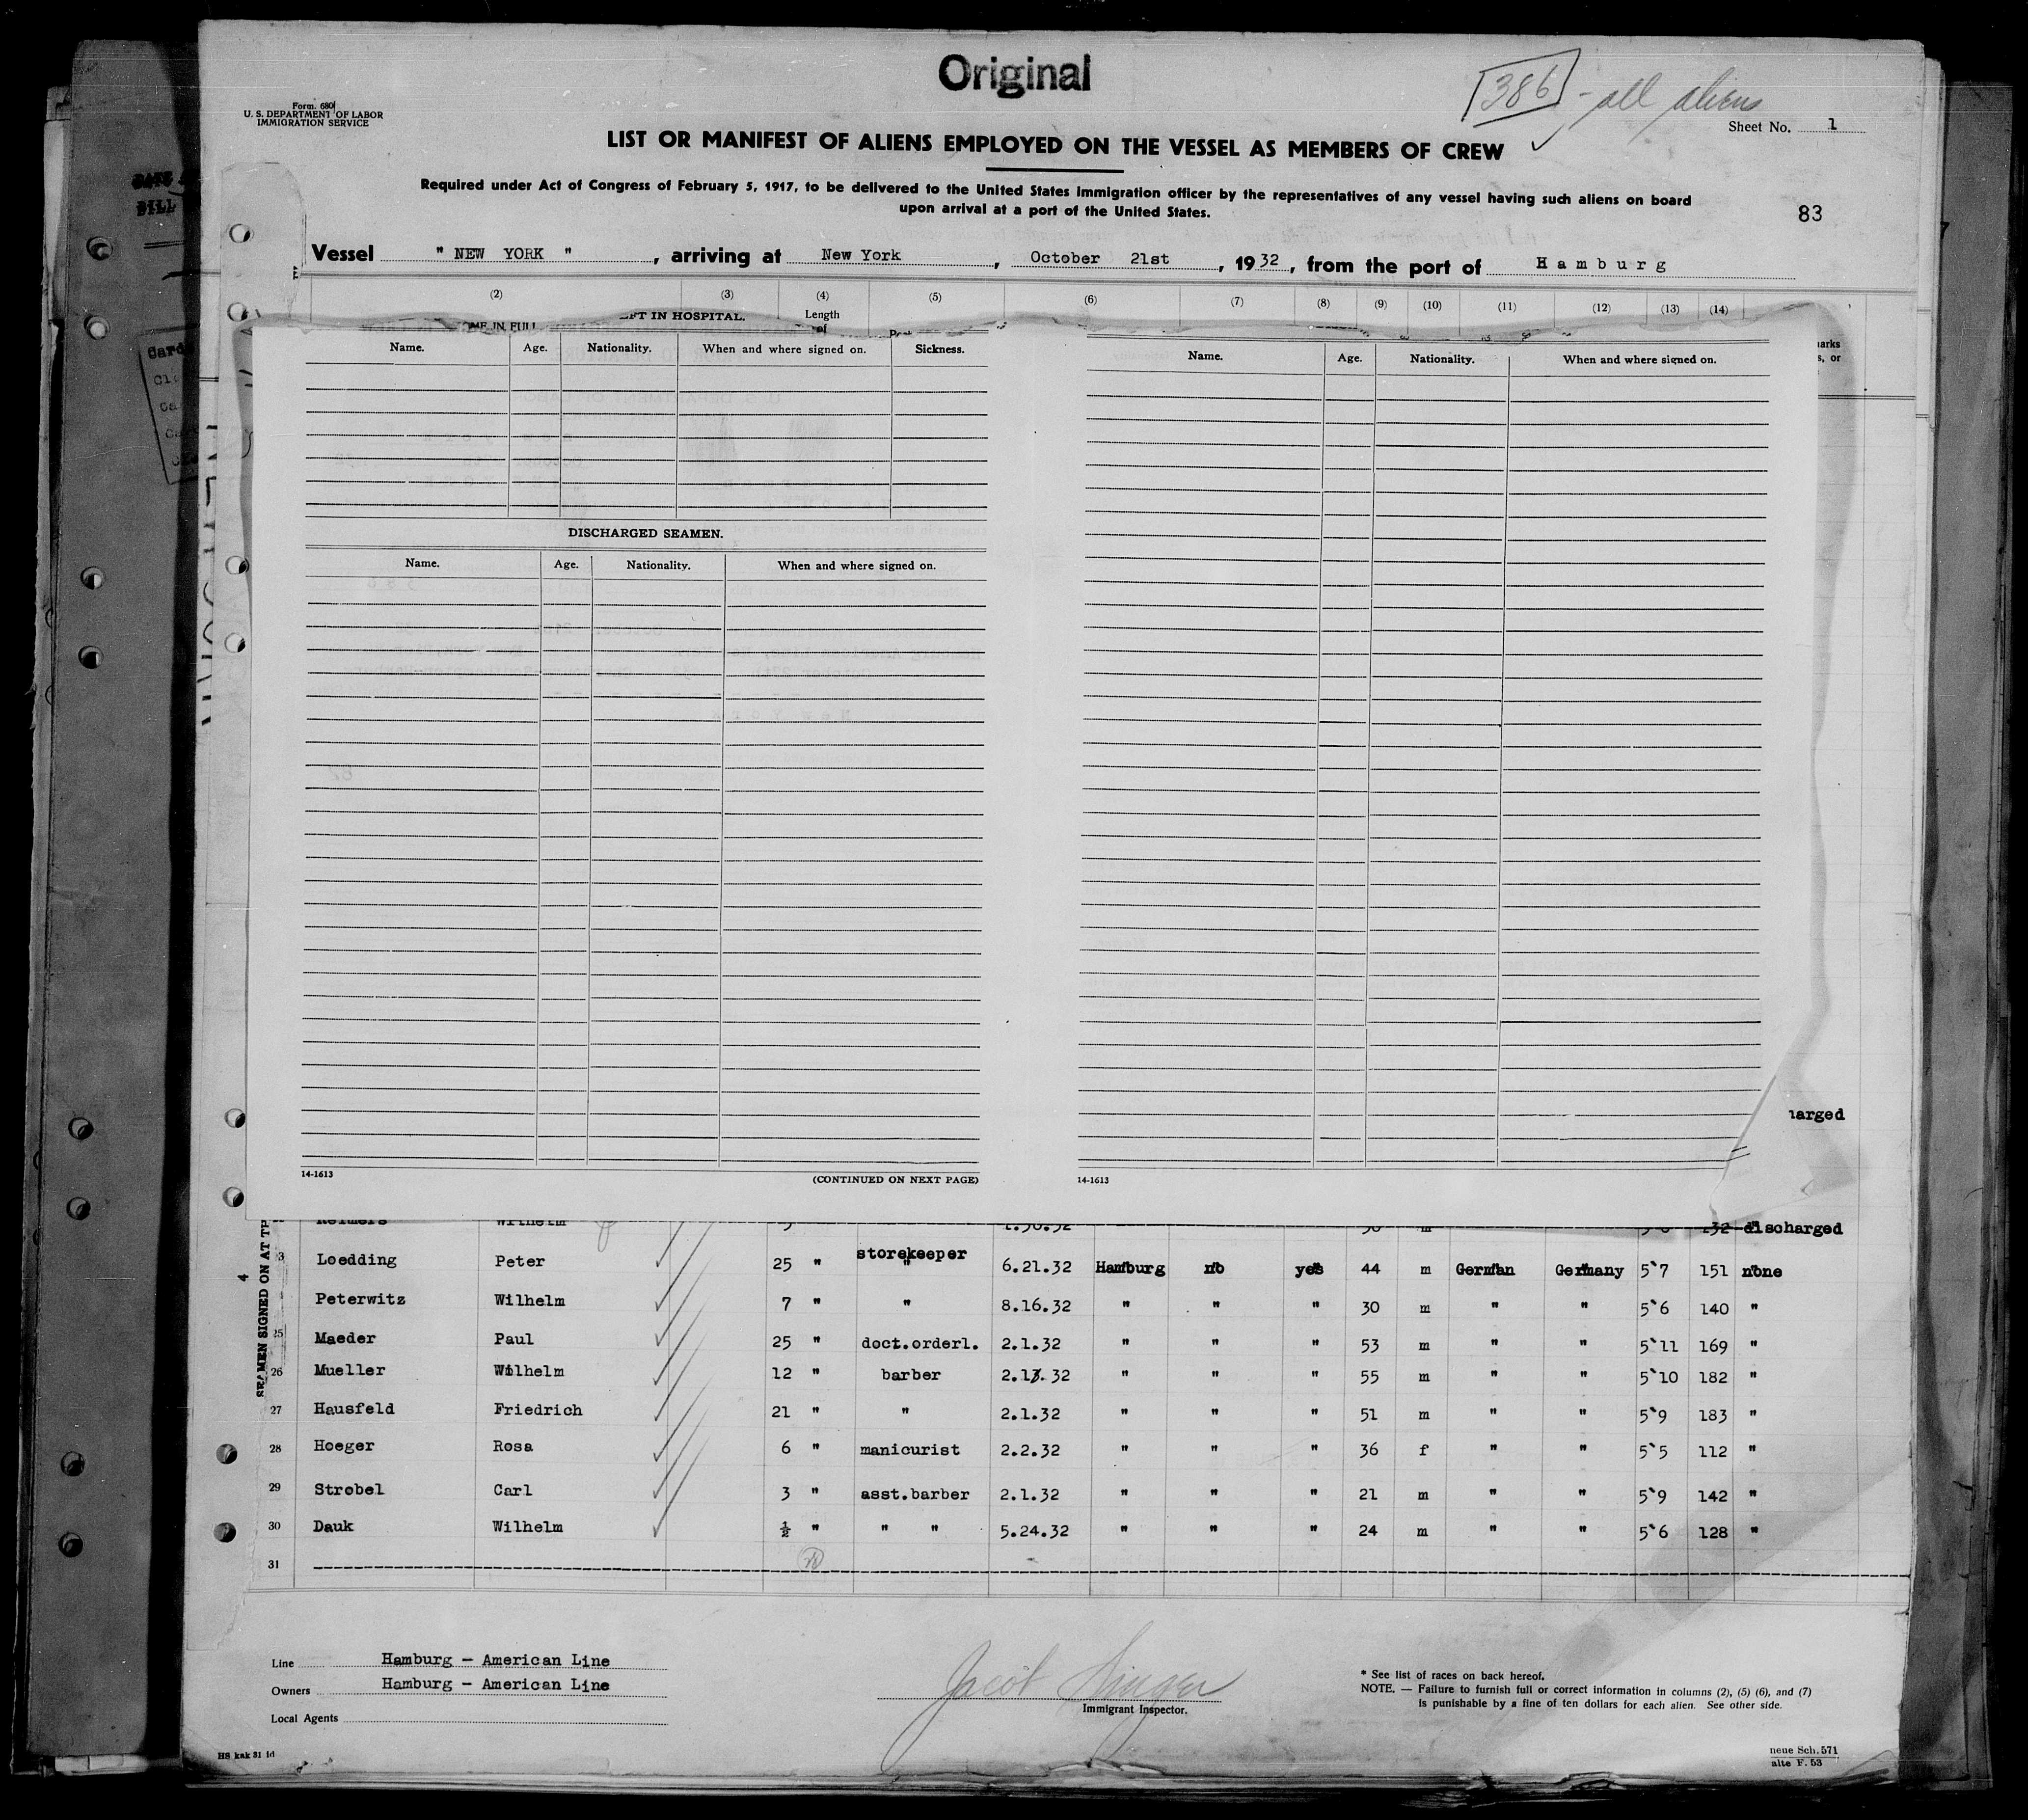 Original
386 - all aliens
Form. 680
U. S. DEPARTMENT OF LABOR
IMMIGRATION SERVICE
Sheet No. 1
LIST OR MANIFEST OF ALIENS EMPLOYED ON THE VESSEL AS MEMBERS OF CREW
Required under Act of Congress of February 5, 1917, to be delivered to the United States Immigration officer by the representatives of any vessel having such aliens on board
upon arrival at a port of the United States.
83
Vessel " NEW YORK " , arriving at New York , October 21st , 19 32 , from the port of Hamburg
(2) (3) (4) (5) (6) (7) (8) (9) (10) (11) (12) (13) (14)
IN HOSPITAL. Length
of
Name. Age. Nationality. When and where signed on. Sickness.
Name. Age. Nationality. When and where signed on.
DISCHARGED SEAMEN.
Name. Age. Nationality. When and where signed on.
14-1613 (CONTINUED ON NEXT PAGE) 14-1613
SEAMEN SIGNED ON AT
4
Reimers Wilhelm discharged
Loedding Peter 25 " storekeeper " 6.21.32 Hamburg no yes 44 m German Germany 5`7 151 none
Peterwitz Wilhelm 7 " " 8.16.32 " " " 30 m " " 5`6 140 "
25 Maeder Paul 25 " doct.orderl. 2.1.32 " " " 53 m " " 5`11 169 "
26 Mueller Wilhelm 12 " barber 2.13.32 " " " 55 m " " 5`10 182 "
27 Hausfeld Friedrich 21 " " 2.1.32 " " " 51 m " " 5`9 183 "
28 Hoeger Rosa 6 " manicurist 2.2.32 " " " 36 f " " 5`5 112 "
29 Strobel Carl 3 " asst.barber 2.1.32 " " " 21 m " " 5`9 142 "
30 Dauk Wilhelm ½ " " " 5.24.32 " " " 24 m " " 5`6 128 "
31
Line Hamburg - American Line
Owners Hamburg - American Line
Local Agents
Jacob Singer
Immigrant Inspector.
* See list of races on back hereof.
NOTE. — Failure to furnish full or correct information in columns (2), (5) (6), and (7)
is punishable by a fine of ten dollars for each alien. See other side.
HS kak 31 1d
neue Sch. 571
alte F. 53